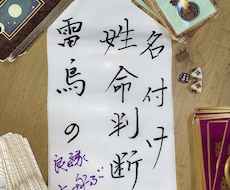 名付け
姓命判断
雷鳥の
良縁